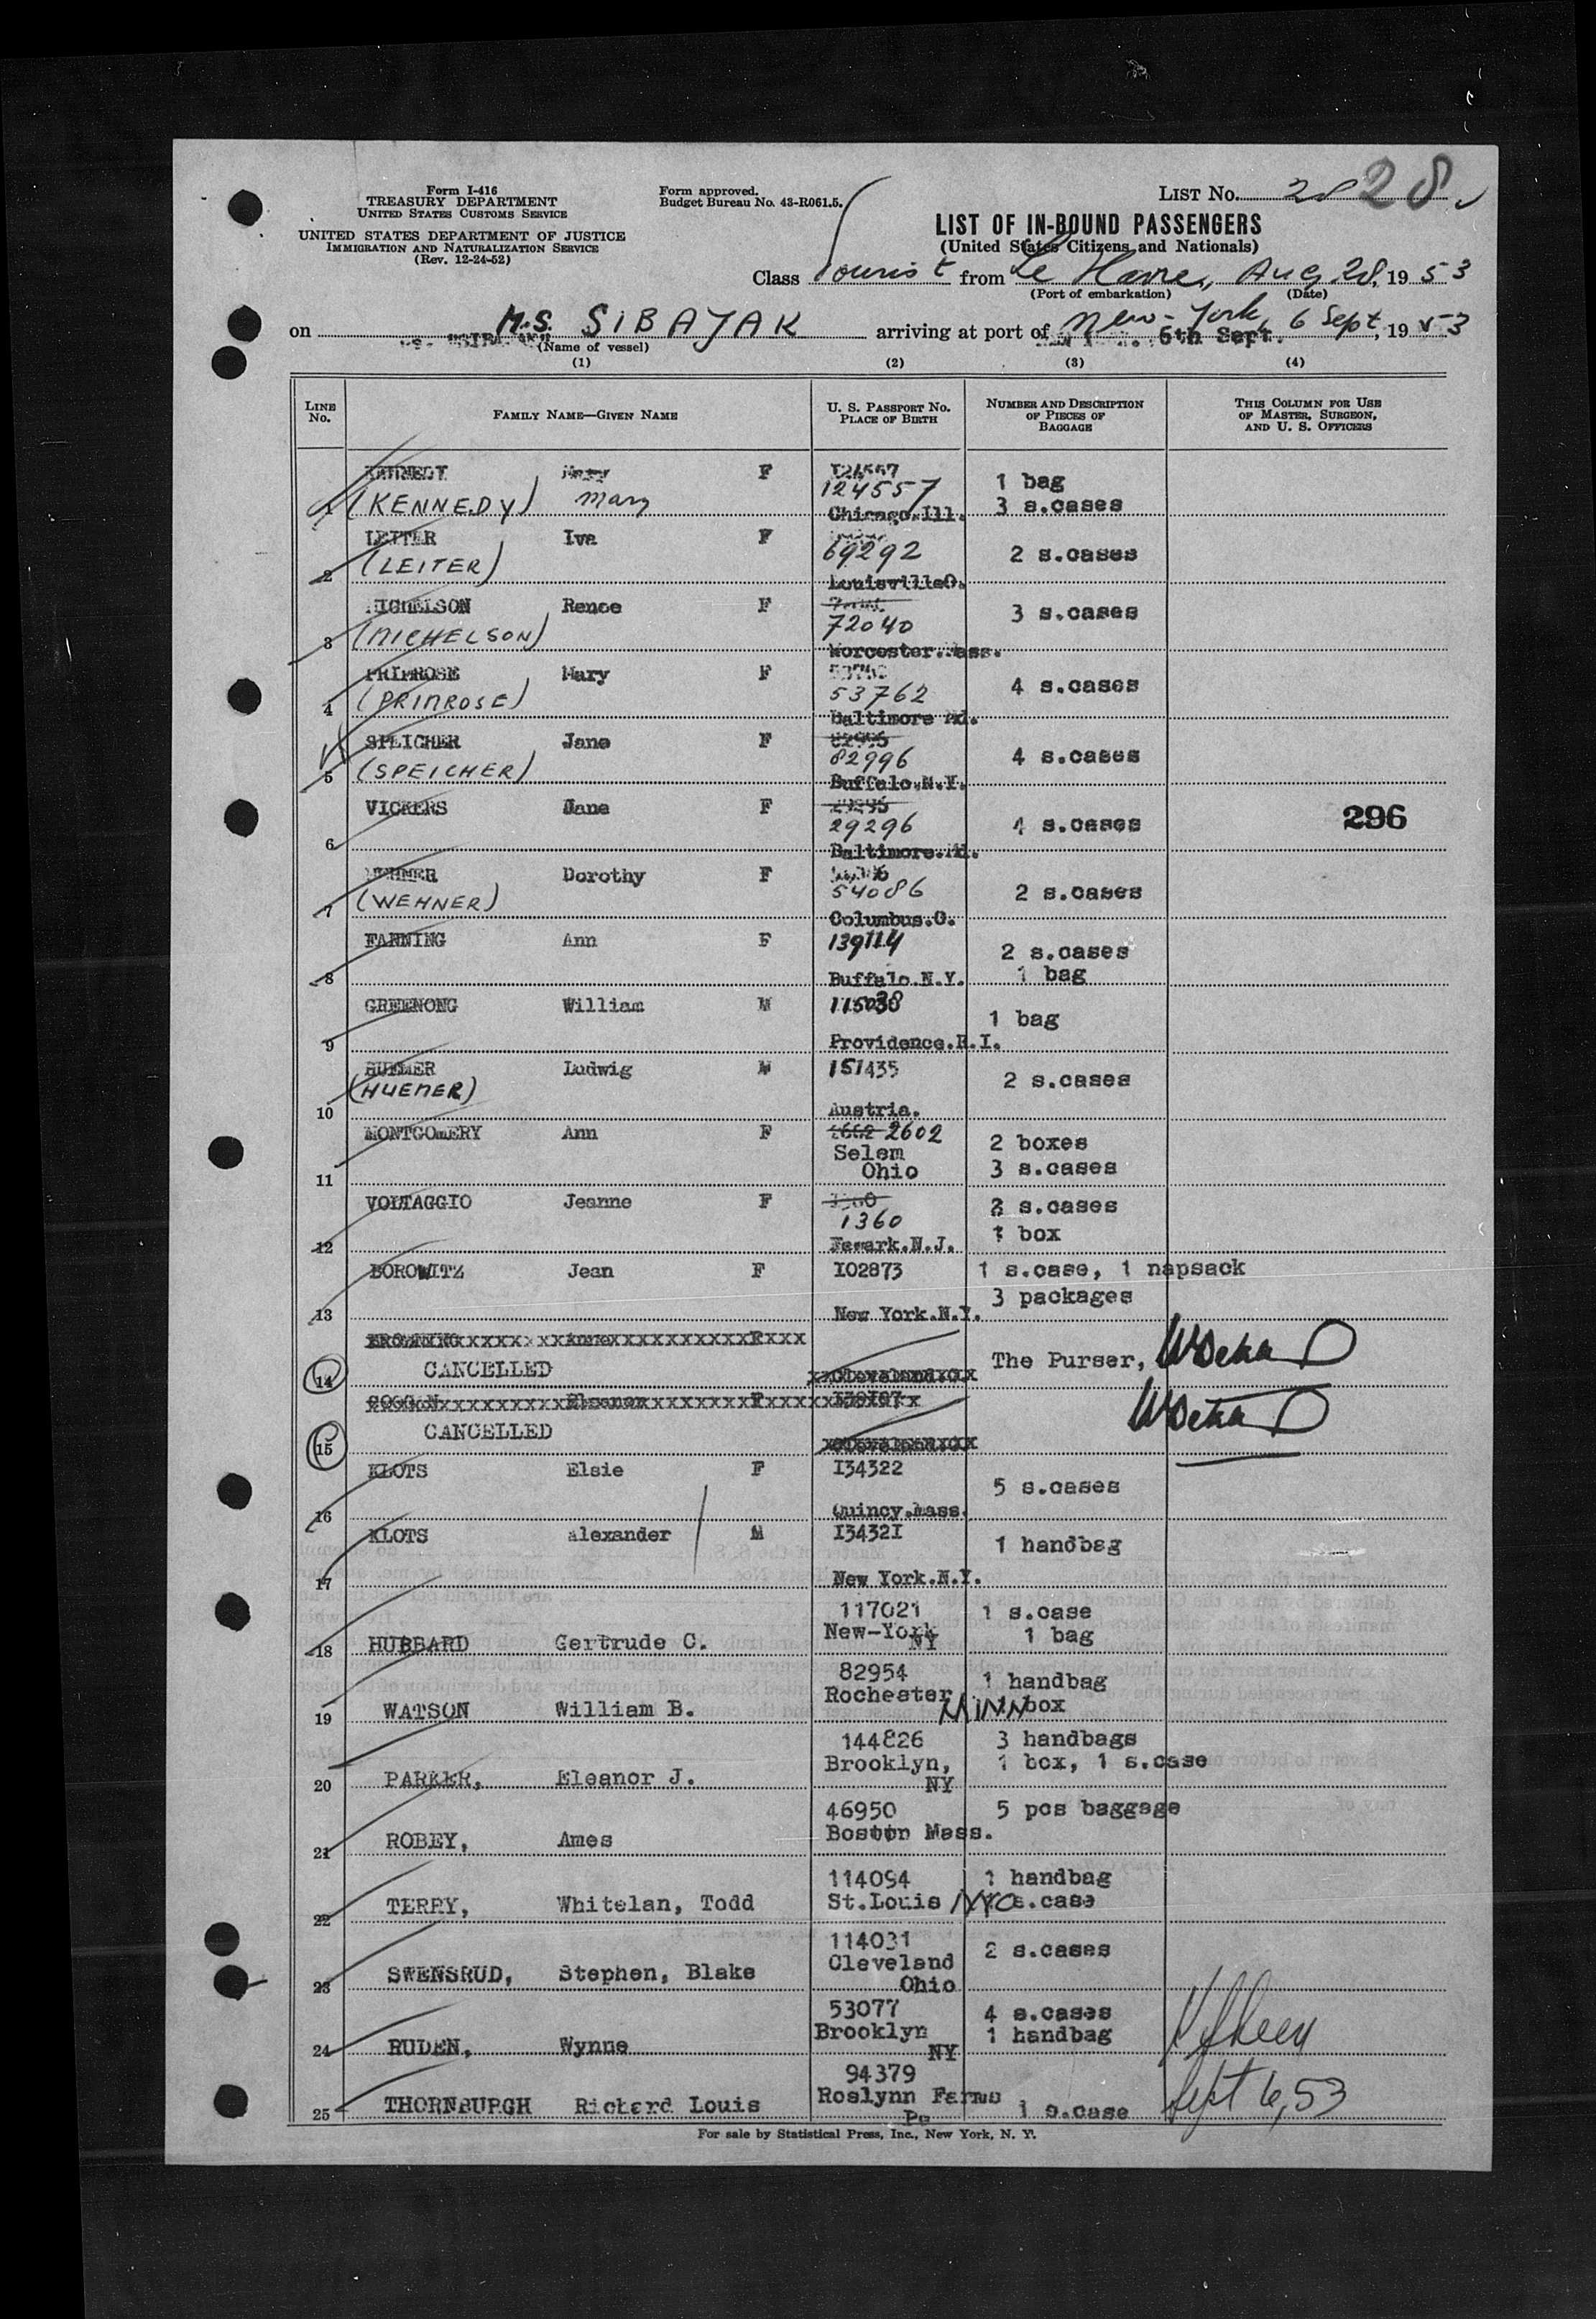 Form I-416
TREASURY DEPARTMENT
UNITED STATES CUSTOMS SERVICE
UNITED STATES DEPARTMENT OF JUSTICE
IMMIGRATION AND NATURALIZATION SERVICE
(Rev. 12-24-52)
Form approved.
Budget Bureau No. 43-R061.5.
LIST No. 28 28
LIST OF IN-BOUND PASSENGERS
(United States Citizens and Nationals)
Class Tourist from Le Havre, Aug 28, 1953
(Port of embarkation) (Date)
on M.S. SIBAJAK arriving at port of New-York, 6 Sept, 1953
(Name of vessel) 6th Sept.
(1) (2) (3) (4)
LINE No. FAMILY NAME—GIVEN NAME U. S. PASSPORT NO. PLACE OF BIRTH NUMBER AND DESCRIPTION OF PIECES OF BAGGAGE THIS COLUMN FOR USE OF MASTER, SURGEON, AND U. S. OFFICERS
KENNEDY Mary F 124557 1 bag
(KENNEDY) Mary 124557 3 s.cases
Chicago.Ill.
LEITER Iva F
2 (LEITER) 69292 2 s.cases
LouisvilleO.
MICHELSON Renoe F
3 (MICHELSON) 72040 3 s.cases
Worcester.Mass.
PRIMROSE Mary F 53762
4 (PRIMROSE) 53762 4 s.cases
Baltimore Md.
SPLICHER Jane F 82996
5 (SPEICHER) 82996 4 s.cases
Buffalo.N.Y.
VICKERS Jane F 29296
6 29296 4 s.cases 296
Baltimore.Md.
WEHNER Dorothy F
7 (WEHNER) 54086 2 s.cases
Columbus.O.
FANNING Ann F 139114 2 s.cases
8 Buffalo.N.Y. 1 bag
GREENONG William M 115038 1 bag
9 Providence.R.I.
HUEMER Ludwig M 151435 2 s.cases
(HUEMER)
10 Austria.
MONTGOmERY Ann F 2602 2 boxes
Selem 3 s.cases
11 Ohio
VOLTAGGIO Jeanne F 1360 s.cases
1360 1 box
12 Newark.N.J.
BOROWITZ Jean F I02873 1 s.case, 1 napsack
3 packages
13 New York.N.Y.
BROWNINGxxxxxxxxxAnnexxxxxxxxxxxFxxxx
14 CANCELLED xxClevelandxOxX The Purser,
COGGINxxxxxxxxxxEleanorxxxxxxxxxFxxxx
15 CANCELLED xClevelandxOxX
KLOTS Elsie F I34322 5 s.cases
16 Quincy.Mass.
KLOTS Alexander M I3432I 1 handbag
17 New York.N.Y.
117021 1 s.case
18 HUBBARD Gertrude C. New-York NY 1 bag
82954 1 handbag
19 WATSON William B. Rochester MINN 1 box
144826 3 handbags
20 PARKER, Eleanor J. Brooklyn, NY 1 box, 1 s.case
46950 5 pcs baggage
21 ROBEY, Ames Boston Mass.
114094 1 handbag
22 TERRY, Whitelan, Todd St.Louis MO s.case
114031 2 s.cases
23 SWENSRUD, Stephen, Blake Cleveland Ohio
53077 4 s.cases
24 RUDEN, Wynne Brooklyn NY 1 handbag
94379
25 THORNBURGH Richard Louis Roslynn Farms Pa 1 s.case Sept 6, 53
For sale by Statistical Press, Inc., New York, N. Y.